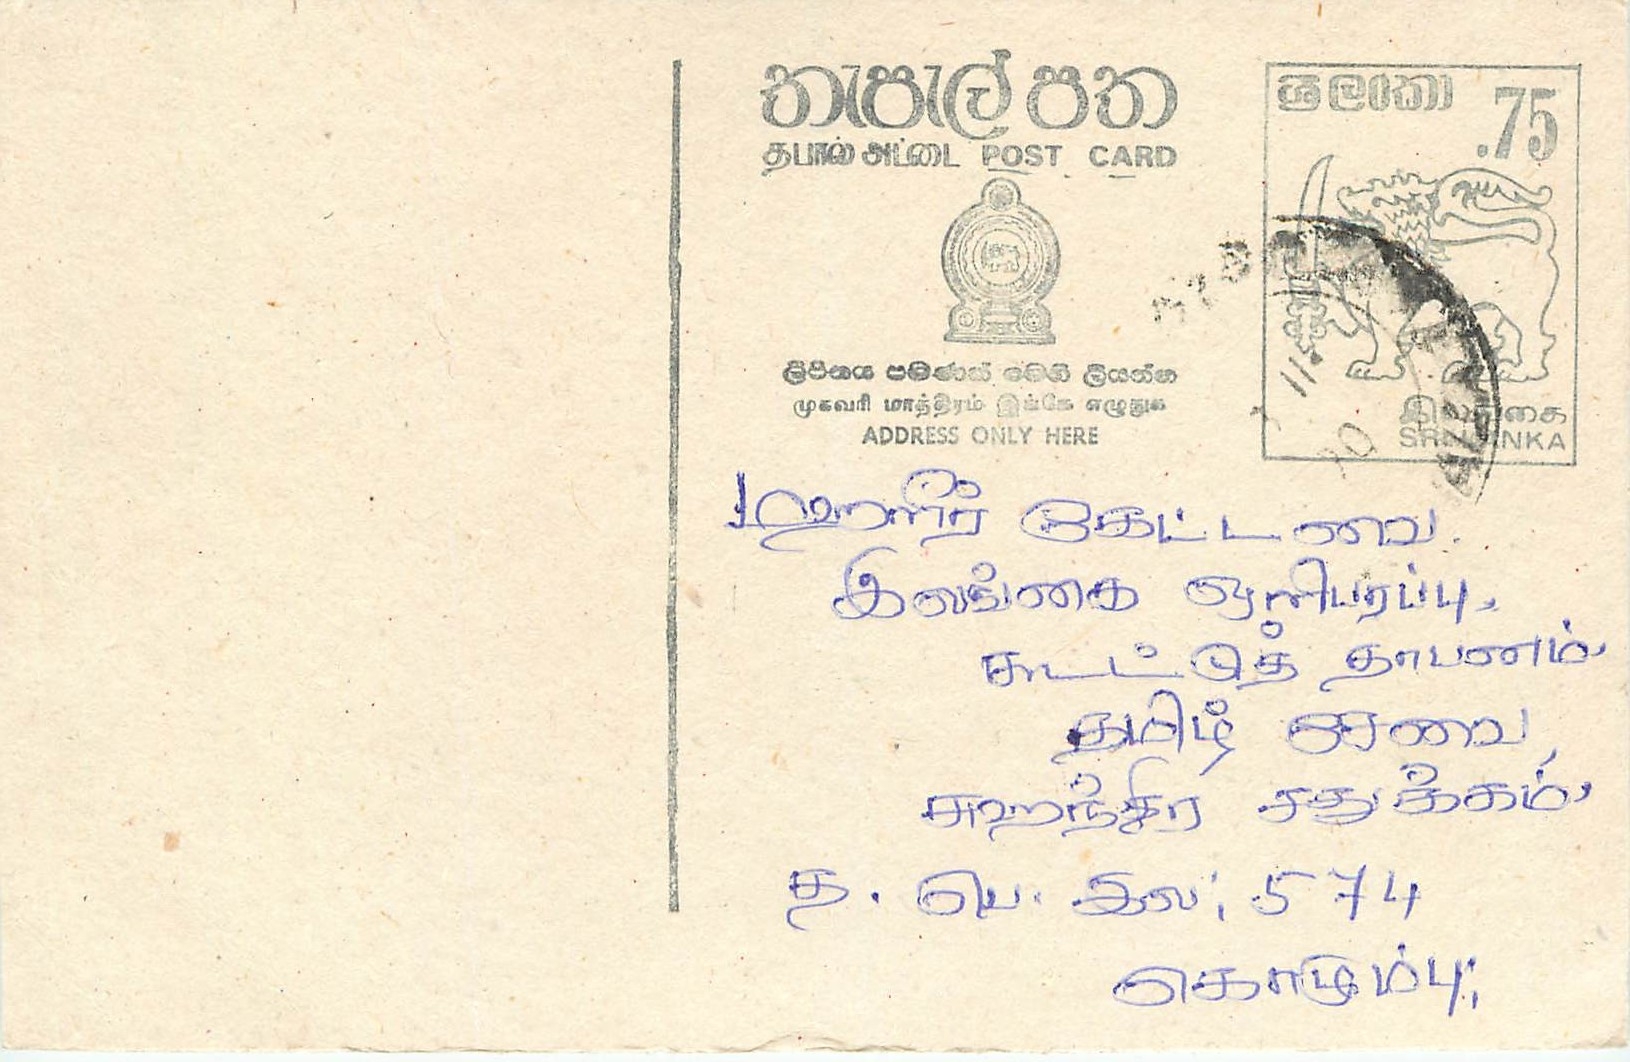 තැපැල් පත
தபால் அட்டை POST CARD
ශ්‍රී ලංකා
.75
ලිපිනය පමණක් මෙහි ලියන්න
முகவரி மாத்திரம் இங்கே எழுதுக
ADDRESS ONLY HERE
இலங்கை
SRI LANKA
மஹளிர் கேட்டவை.
இலங்கை ஒளிபரப்பு,
கூட்டுத் தாபனம்
தமிழ் சேவை,
சுதந்திர சதுக்கம்
த. பெ. இல; 574
கொழும்பு;